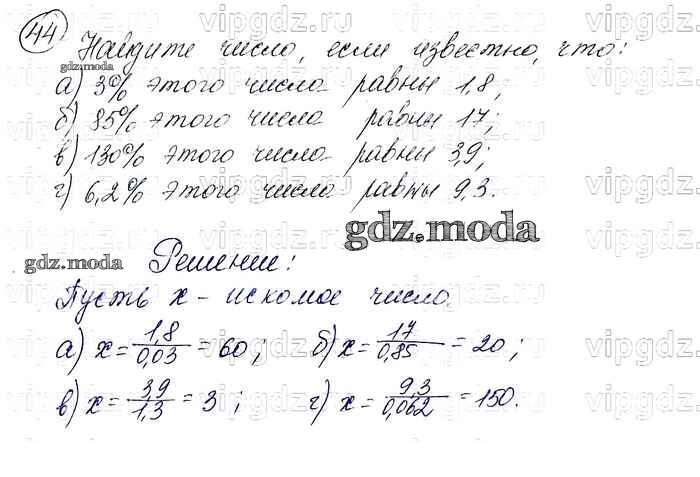 44 Найдите число, если известно, что:
gdz.moda
а) 3% этого числа равны 1,8;
б) 85% этого числа равны 17;
в) 130% этого числа равны 3,9;
г) 6,2% этого числа равны 9,3.
gdz.moda
gdz.moda Решение:
Пусть x - искомое число.
а) x = 1,8/0,03 = 60; б) x = 17/0,85 = 20;
в) x = 3,9/1,3 = 3; г) x = 9,3/0,062 = 150.
vipgdz.ru vipgdz.ru vipgdz.ru vipgdz.ru